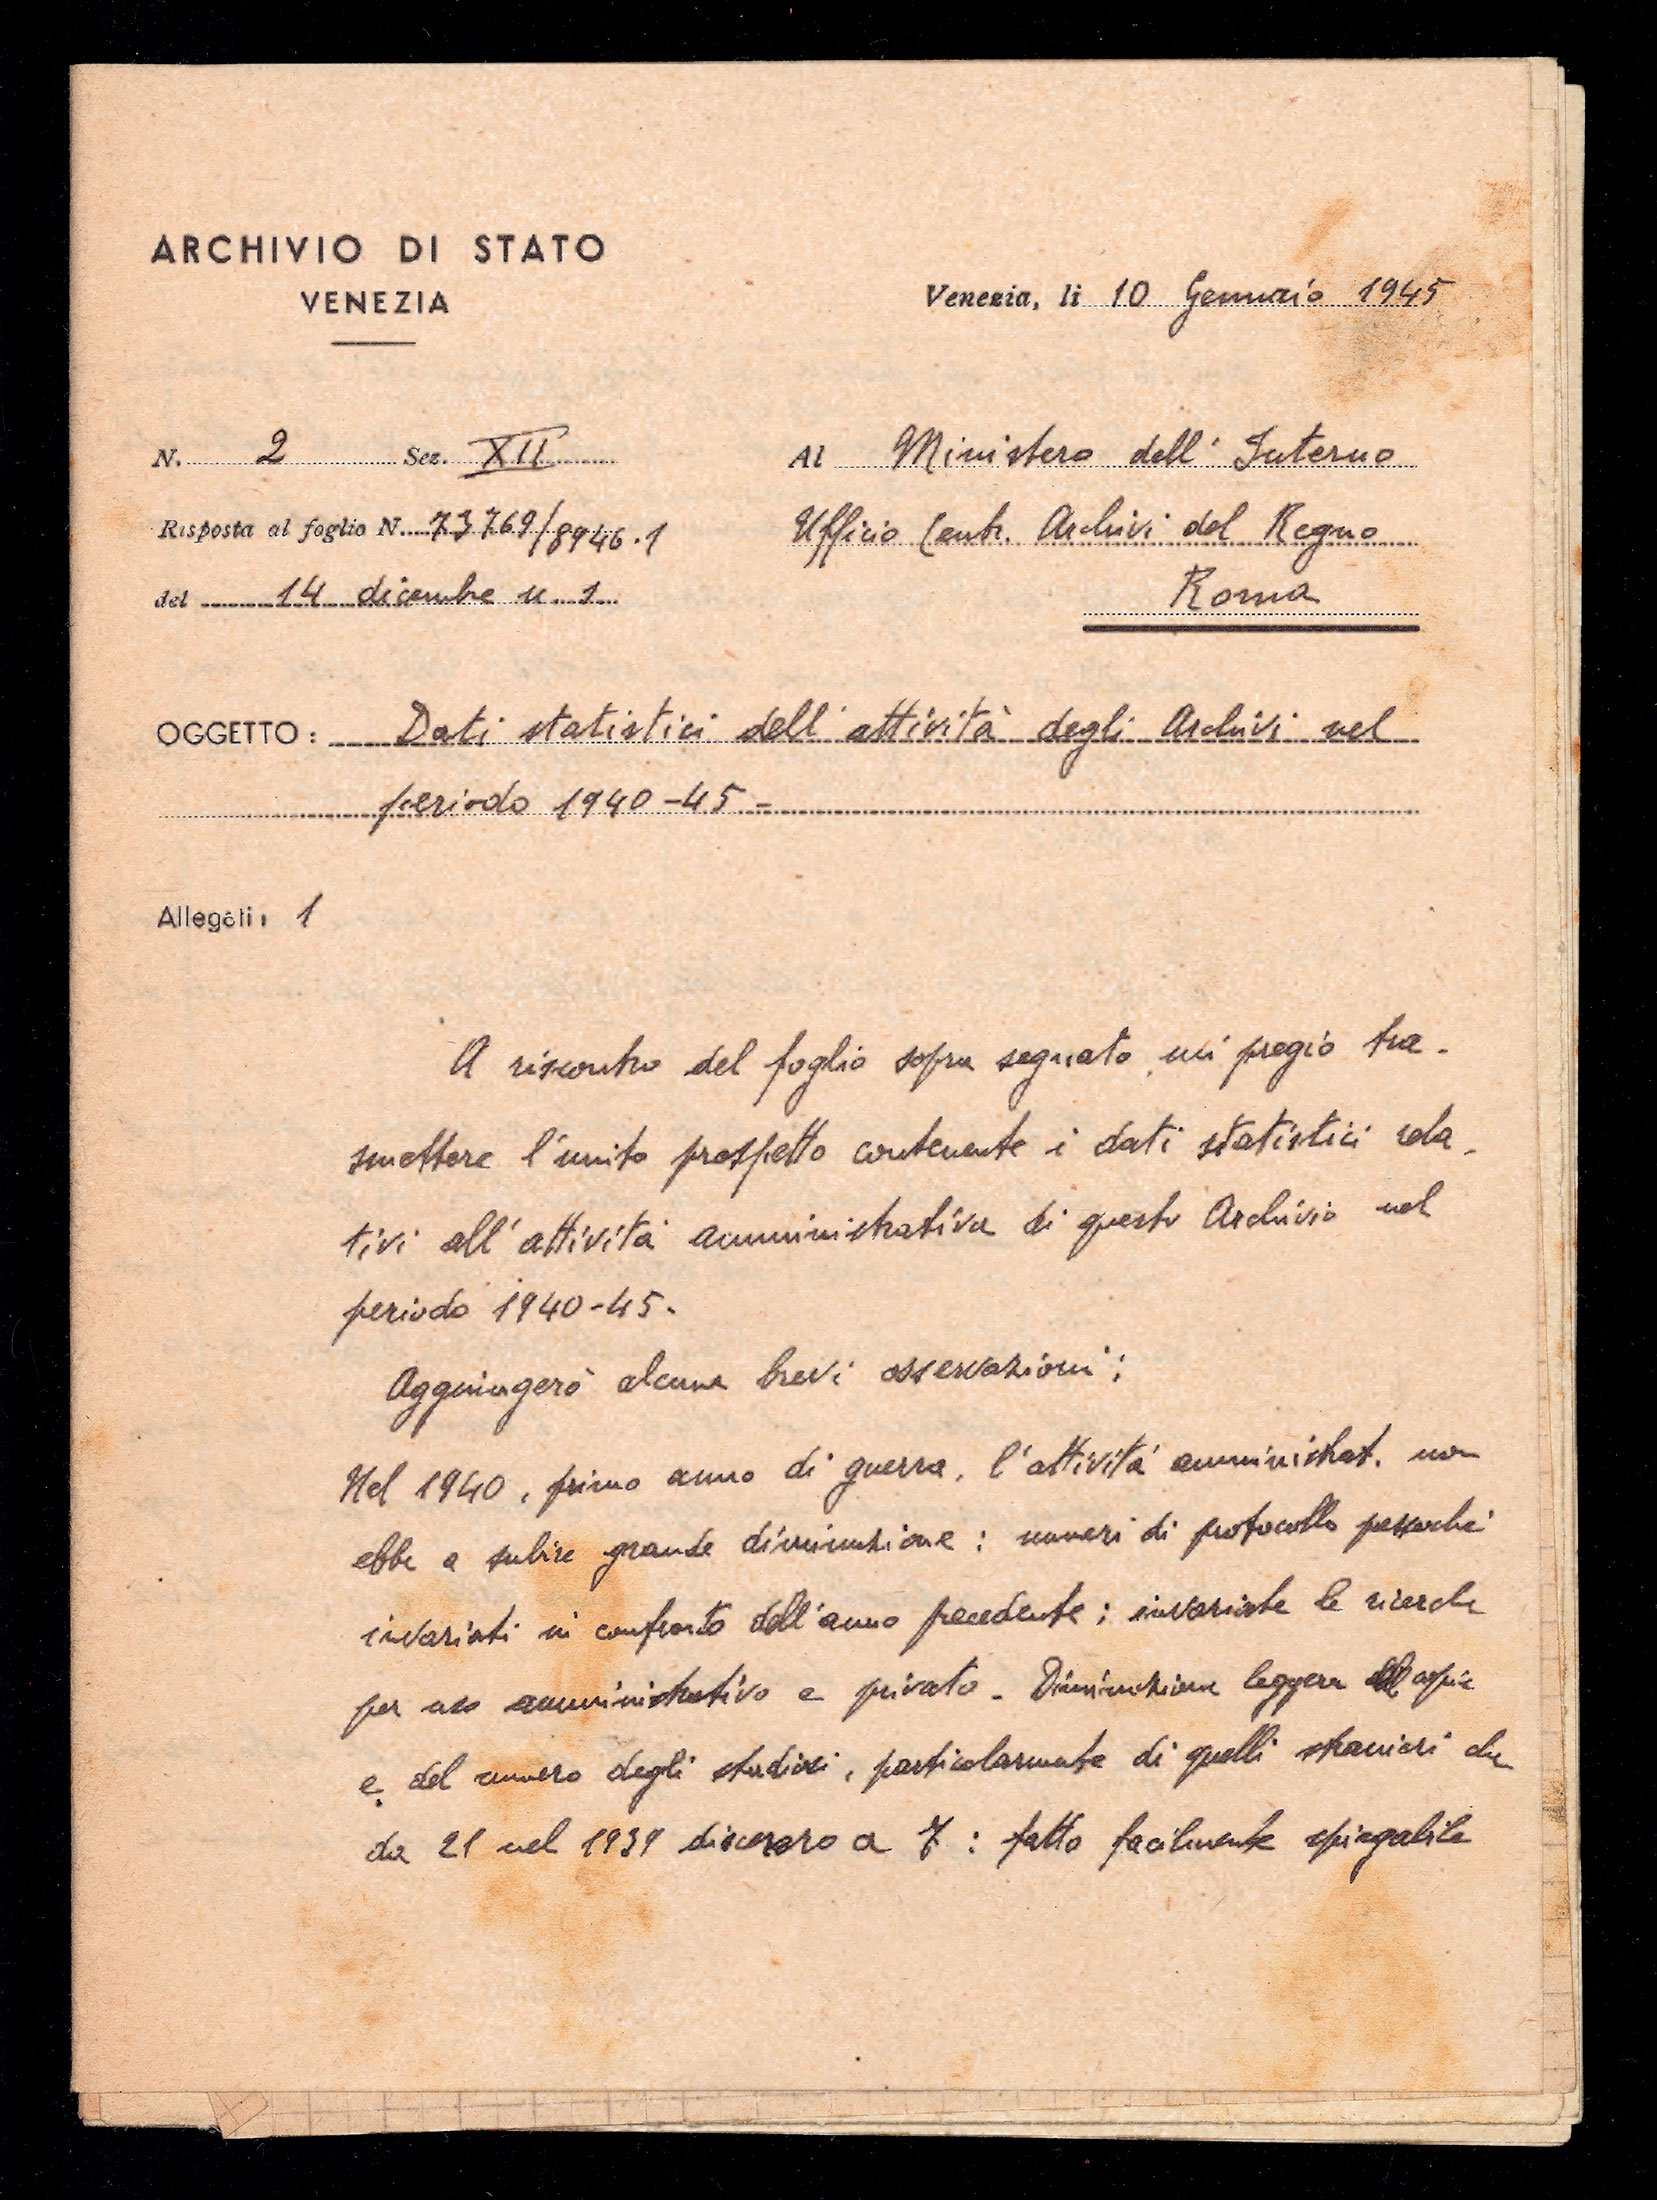 ARCHIVIO DI STATO
VENEZIA
Venezia, li 10 Gennaio 1945
N. 2 Sez. XII
Risposta al foglio N. 73769/8946.1
del 14 dicembre u. s.
Al Ministero dell'Interno
Ufficio Centr. Archivi del Regno
Roma
OGGETTO: Dati statistici dell'attività degli Archivi nel
periodo 1940-45-
Allegati: 1
A riscontro del foglio sopra segnato, mi pregio tra-
smettere l'unito prospetto contenente i dati statistici rela-
tivi all'attività amministrativa di questo Archivio nel
periodo 1940-45.
Aggiungerò alcune brevi osservazioni:
Nel 1940, primo anno di guerra, l'attività amministrat. non
ebbe a subire grande diminuzione: numeri di protocollo pressochè
invariati in confronto dell'anno precedente; invariate le ricerche
per uso amministrativo e privato. Diminuzione leggera copie
e del numero degli studiosi, particolarmente di quelli stranieri che
da 21 nel 1939 discesero a 7: fatto facilmente spiegabile